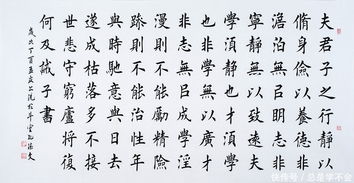 夫君子之行靜以
脩身儉以養德非
澹泊無以明志非
寧靜無以致遠夫
學須靜也才須學
也非學無以廣才
非志無以成學淫
慢則不能勵精險
躁則不能治性年
與時馳意與日去
遂成枯落多不接
世悲守窮廬將復
何及誡子書
歲次丁酉孟夏
快传号/总是学不会